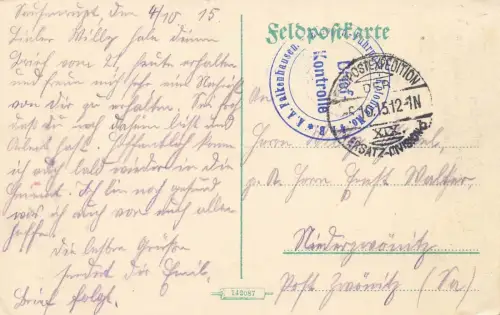 Feldpostkarte
den 4/10 15
Lieber Willy habe deinen
Brief vom 21. heute erhalten
und freue mich sehr eine Nachricht
von dir zu erhalten.
daß du noch daheim bist und
Arbeit hast. Hoffentlich komme
ich auch bald wieder in die
Heimat. Ich bin noch gesund
was ich auch von euch allen
hoffe.
Die besten Grüße
sendet dir Emil.
Brief folgt.
Falkenhausen.
Briefs
Kontrolle
POSTEXPEDITION
10.15.12-1N
XIX
ERSATZ-DIVISION
Herrn
Herrn Ernst Walther
Niederzwönitz
Post Zwönitz (Sa)